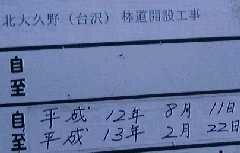 北大久野（台沢）林道開設工事
自
至
自 平成 12年 8月 11日
至 平成 13年 2月 22日